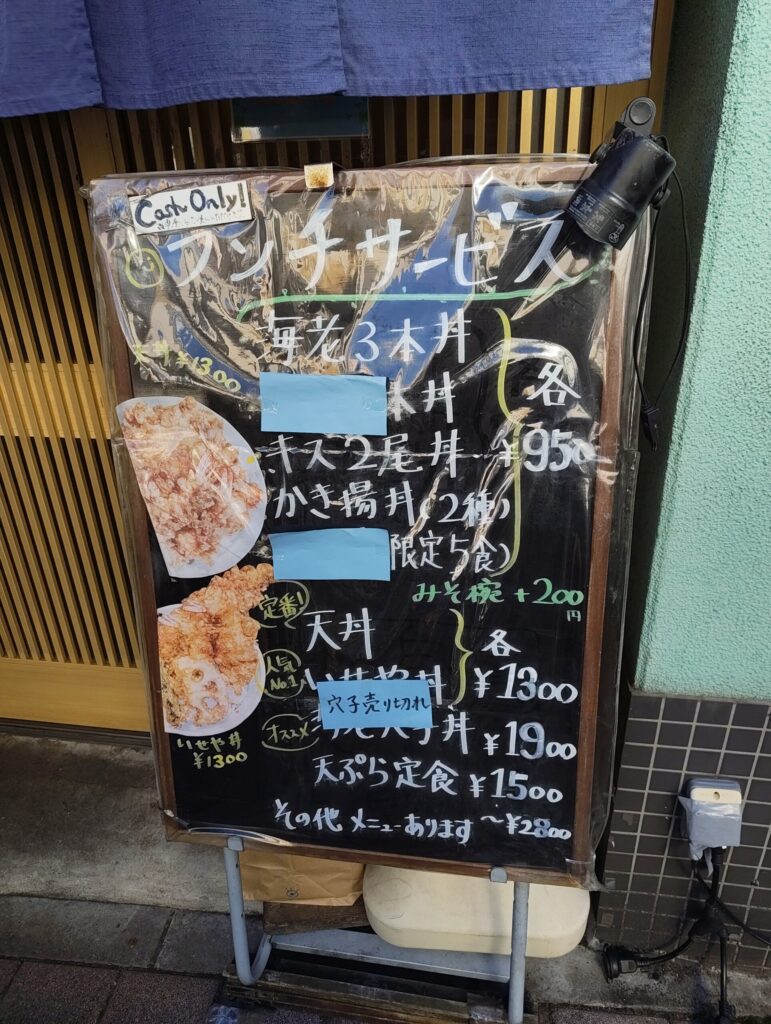 Cash Only!
ランチサービス
海老3本丼
各
天丼 ¥1300
本丼
キス2尾丼 ¥950
かき揚丼(2種)
限定5食)
みそ椀 +200円
定番!
天丼
各
人気No.1
¥1300
穴子売り切れ
オススメ
丼 ¥1900
いせや丼
¥1300
天ぷら定食 ¥1500
その他 メニューあります 〜¥2800